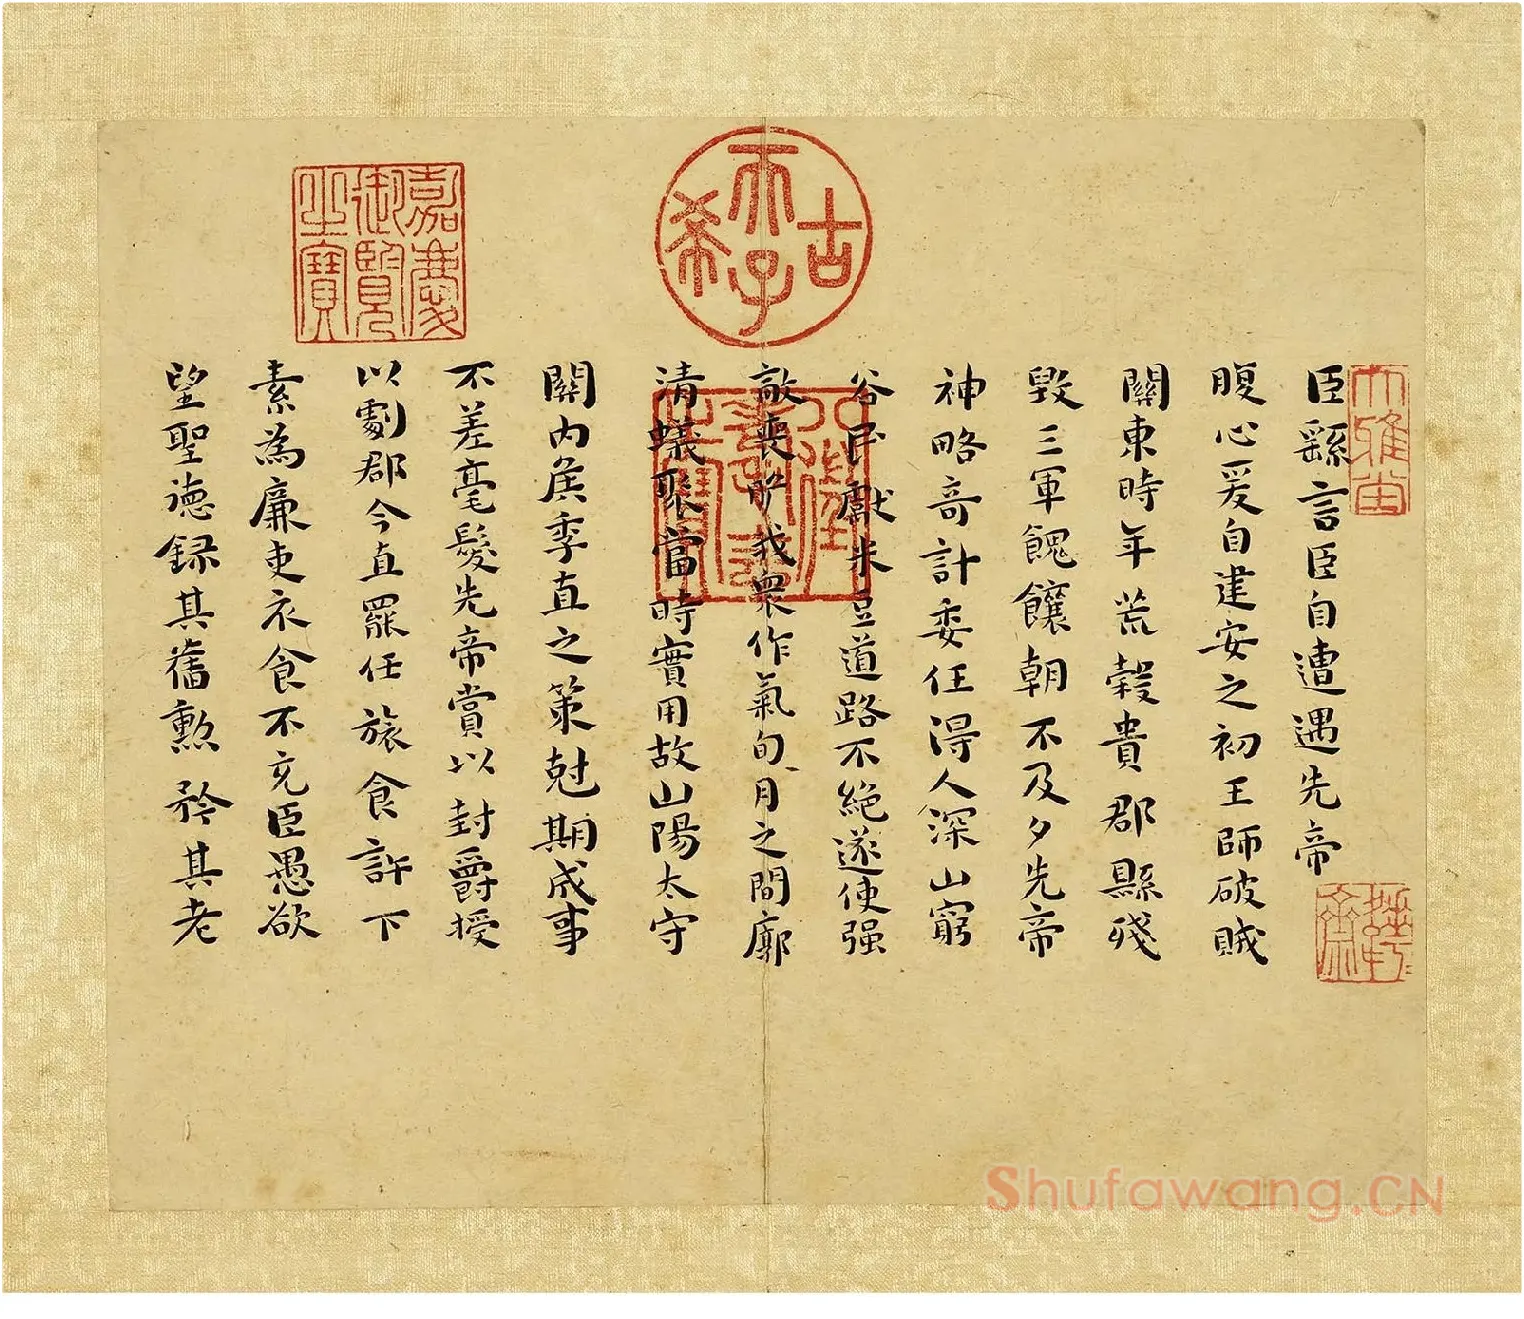 臣繇言臣自遭遇先帝
腹心爰自建安之初王師破賊
關東時年荒穀貴郡縣殘
毀三軍餽饟朝不及夕先帝
神略奇計委任得人深山窮
谷民獻米豆道路不絕遂使强
敵喪膽我衆作氣旬月之間廓
清蟻聚當時實用故山陽太守
關內侯季直之策尅期成事
不差毫髮先帝賞以封爵授
以劇郡今直罷任旅食許下
素為廉吏衣食不充臣愚欲
望聖德録其舊勲矜其老
古希天子
八徵耄念之寶
嘉慶御覽之寶
Shufawang.CN